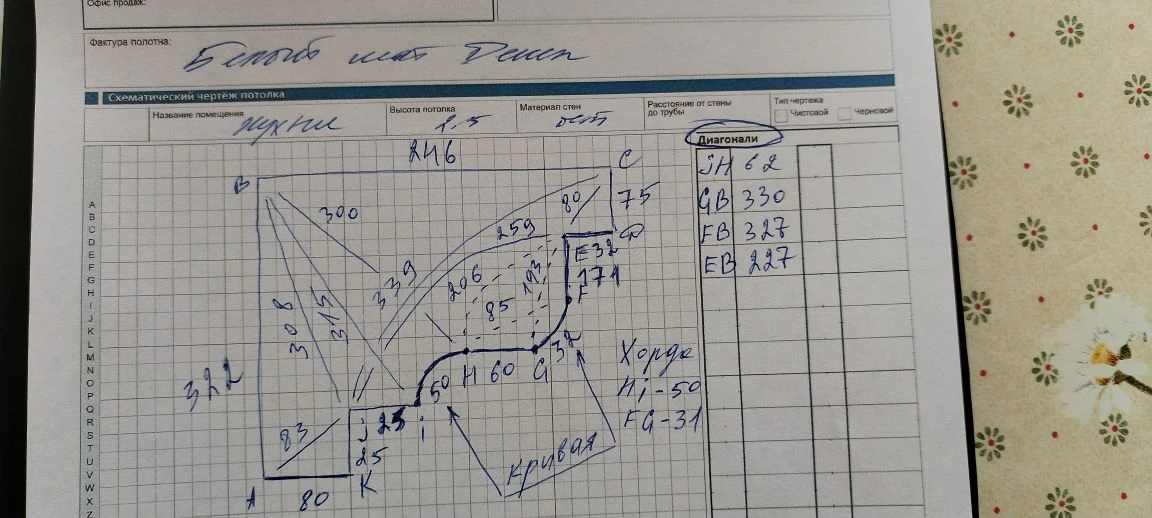 Офис продаж:
Фактура полотна: Белый мат
Схематический чертёж потолка
Название помещения кухня
Высота потолка
Материал стен
Расстояние от стены до трубы
Тип чертежа
Чистовой Черновой
Диагонали
jH 62
GB 330
FB 327
EB 227
246
B
C
300
80
75
259
D
339
206
193
E 32
171
F
85
308
315
322
H 60 G 32
50
Хорда
Hj - 50
FG - 31
j 25 i
83
25
Кривая
A 80 K
A
B
C
D
E
F
G
H
I
J
K
L
M
N
O
P
Q
R
S
T
U
V
W
X
Z